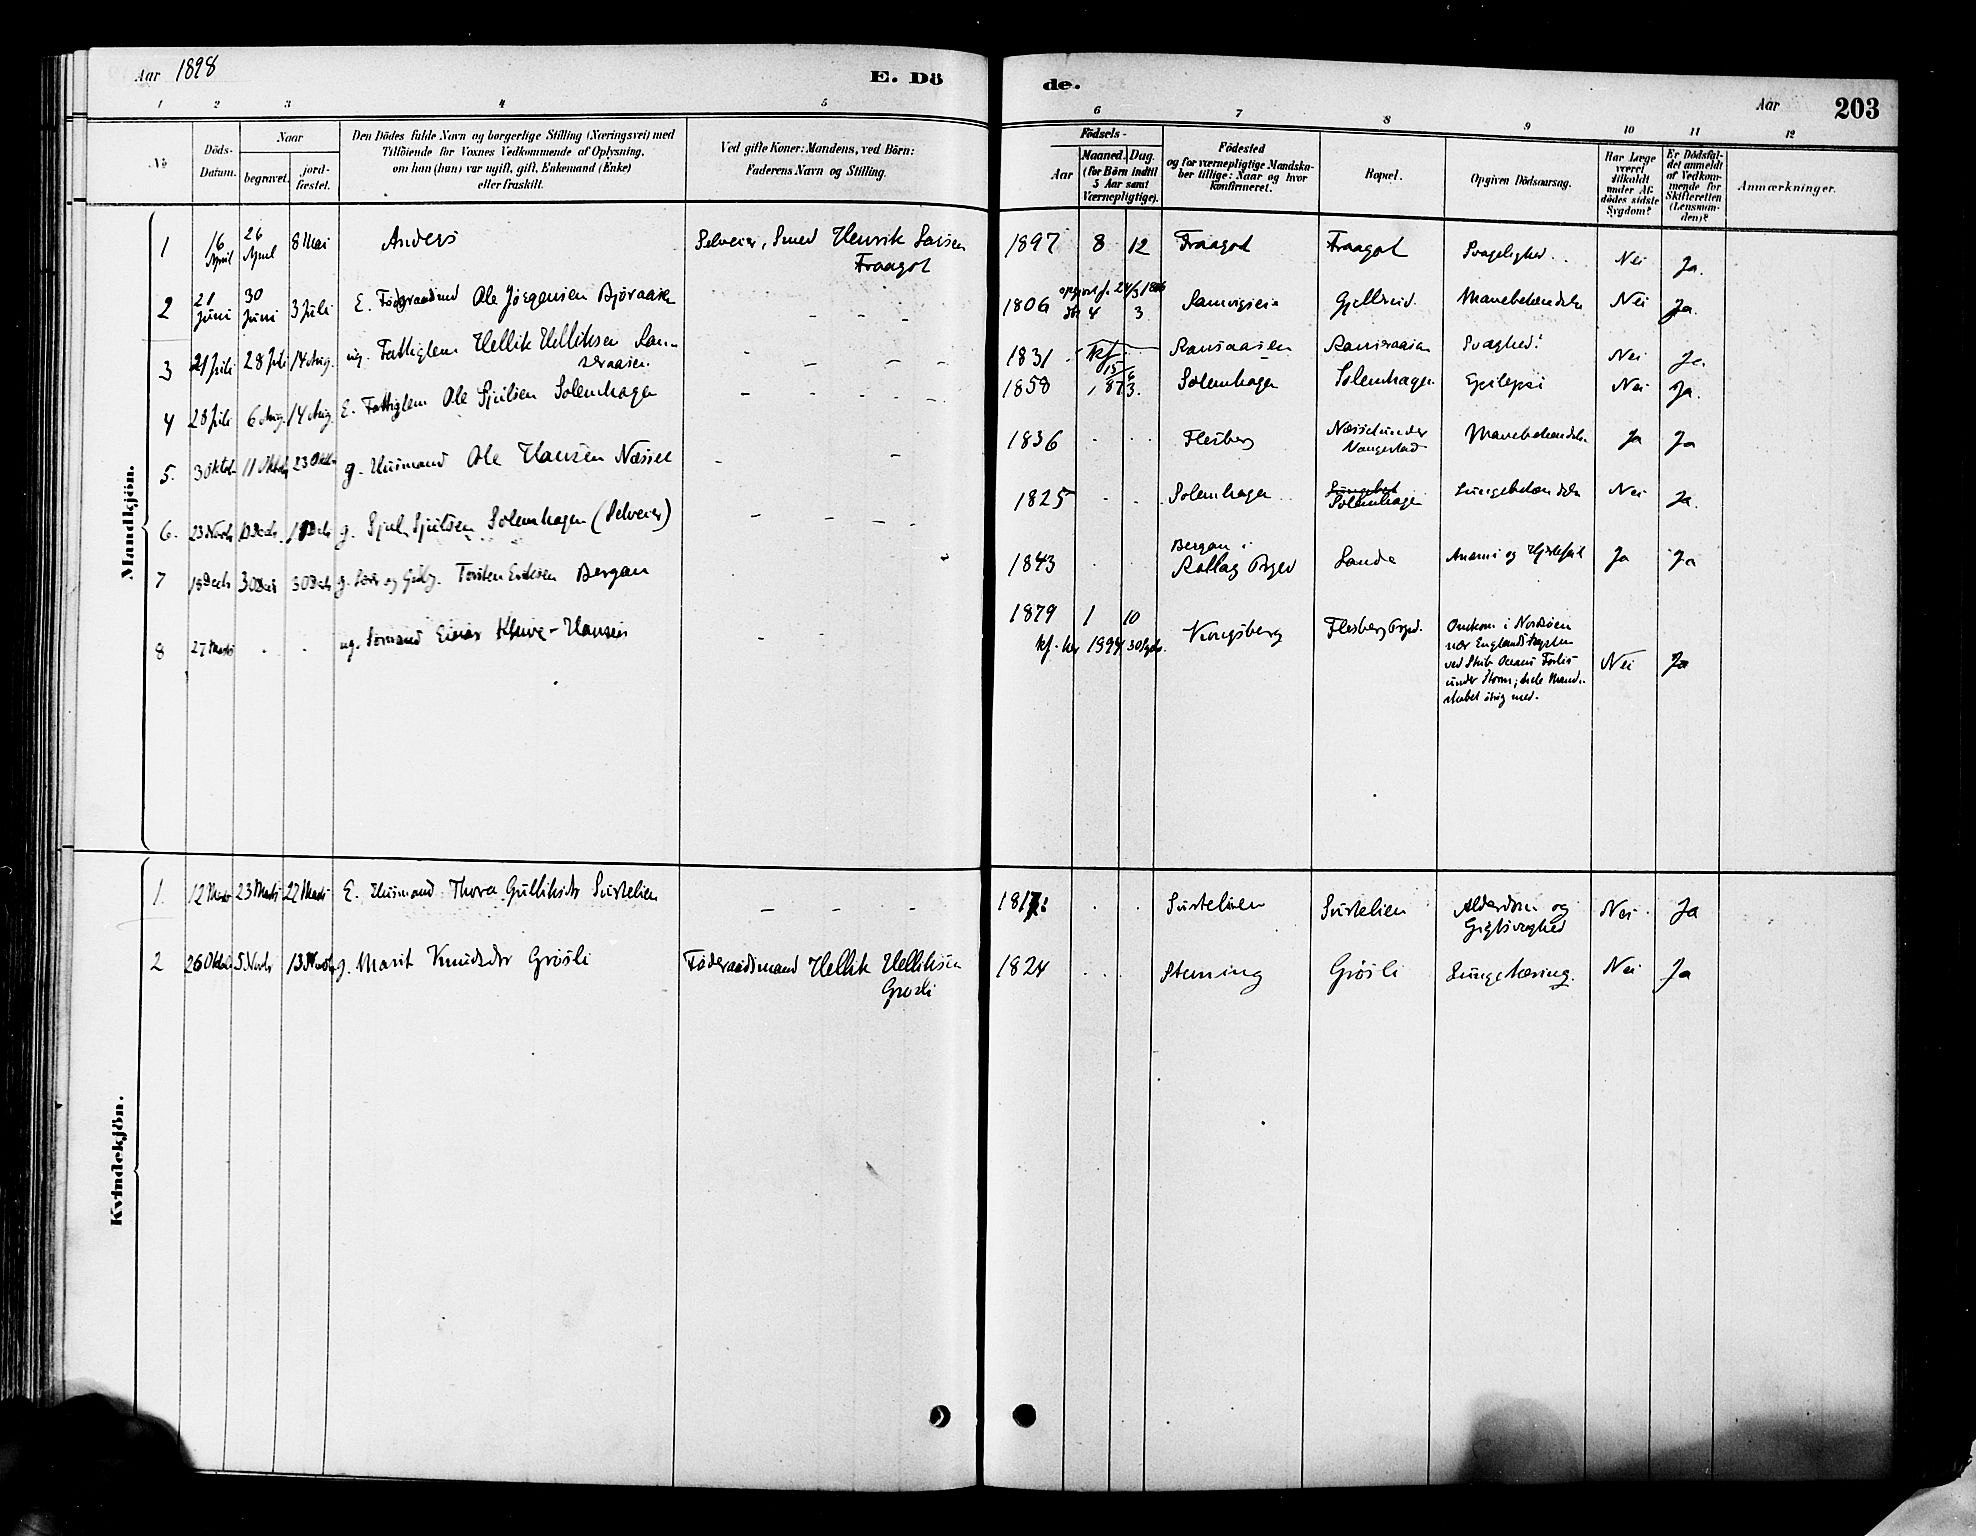 Aar 1898
E. Dö
de.
Aar
203
1 2 3 4 5
6 7 8 9 10 11 12
No
Döds-
Datum.
Naar
begravet.
jord-
fæstet.
Den Dödes fulde Navn og borgerlige Stilling (Næringsvei) med
Tilföiende for Voxnes Vedkommende af Oplysning,
om han (hun) var ugift, gift, Enkemand (Enke)
eller fraskilt.
Ved gifte Koner: Mandens, ved Börn:
Faderens Navn og Stilling.
Födsels-
Aar
Maaned. Dag.
(for Börn indtil
5 Aar samt
Værnepligtige).
Födested
og for værnepligtige Mandska-
ber tillige: Naar og hvor
konfirmeret.
Bopæl.
Opgiven Dödsaarsag.
Har Læge
været
tilkaldt
under Af-
dödes sidste
Sygdom?
Er Dödsfal-
det anmeldt
af Vedkom-
mende for
Skifteretten
(Lensman-
den)?
Anmærkninger.
Mandkjön.
1 16 April 26 April 8 Mai Anders Selveier, Smed Henrik Larsen
Fraagot
1897 8 12 Fraagot Fraagot Svagelighed Nei Ja.
2 21 Juni 30 Juni 3 Juli E. Föderaadmd Ole Jörgensen Björaasen - - -
1806 4 3 Gjellerud. Mavebetændelse Nei Ja.
3 21 Juli 28 Juli 14 Aug. ug. Fattiglem Hellik Helliksen Ran-
seraasen - - - -
1831 Kf. Ransaasen Ranseraasen Svaghed? Nei Ja.
4 28 Juli 6 Aug. 14 Aug. E. Fattiglem Ole Sjulsen Solemhagen - - - -
1858 Solemhagen Solemhagen Epilepsi Nei Ja.
5. 3 Oktob 11 Oktob 23 Oktb g. Husmand Ole Hansen Næsset - -
1836 Flesberg Næsset under
Vangestad Mavebetændelse Ja Ja
6. 23 Novb g. Sjul Sjulsen Solemhagen (Selveier) - - - -
1825 Solemhagen Solemhagen Lungebetændelse Nei Ja.
7 18 Decb 30 Decb g. Torsten Eriksen Bergan
1843 Bergan i
Rollag Prgjd Lande Anæmi og Hjertefeil Ja Ja
8 27 Marts ug. Sömand Einar Kluwe-Hansen - -
1879 1 10
Kongsberg Flesberg Prgjd. Omkom i Nordsöen
nær Englands kysten
ved Skib Oceans Forlis
under Storm; hele Mand-
skabet strög med. Nei Ja
Kvindekjön.
1. 12 Marts 23 Marts 27 Marts E. Husmand Thora Gulliksdr Surtelien - - - -
Surtelien Surtelien Alderdom og
Gigtsvaghed Nei Ja
2 26 Oktb. 5 Novb 13 Novb g. Marit Knudsdr Grösli Föderaadsmand Hellik Helliksen
Grösli
1824 Stuning Grösli Lungetæring. Nei Ja